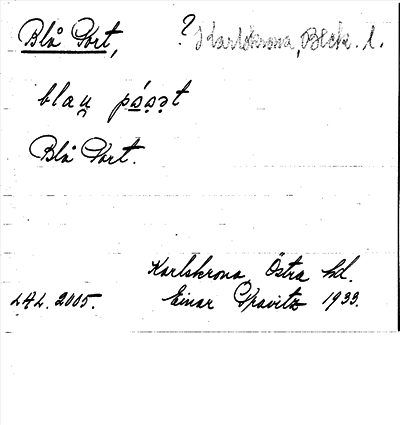 Blå Port, ? Karlskrona, Blek. l.
blau̯ pó̱ṣə̣t
Blå Port.
Karlskrona, Östra hd.
LAL. 2005. Einar Kravitz 1933.